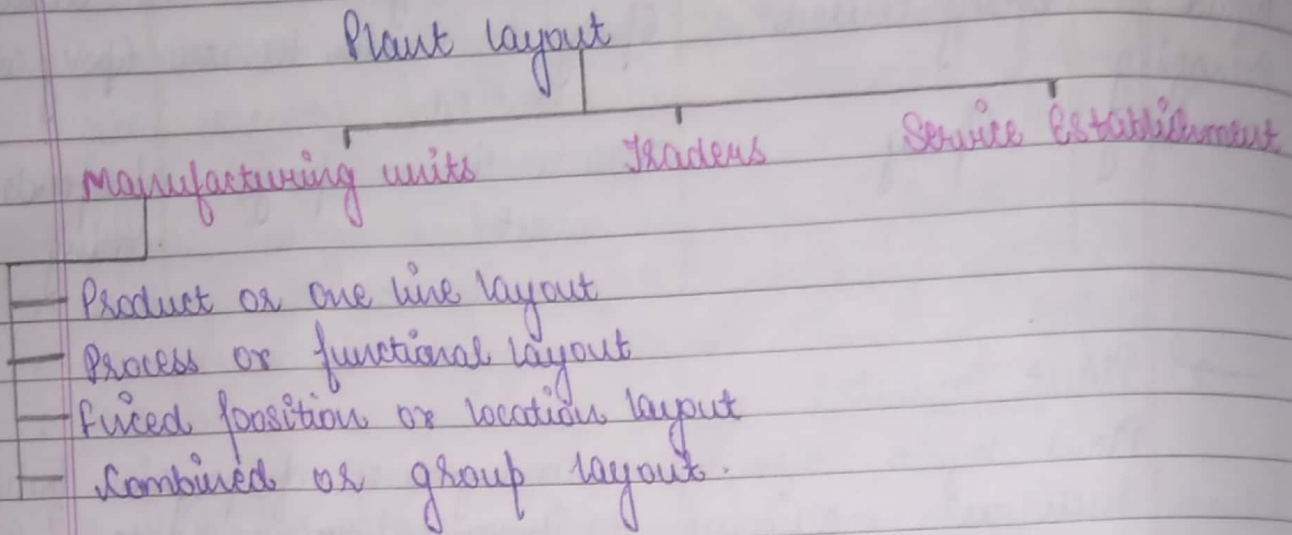 Plant layout
Manufacturing units Traders Service Establishment
Product or one line layout
Process or functional layout
fixed position or location layout
Combined or group layout.